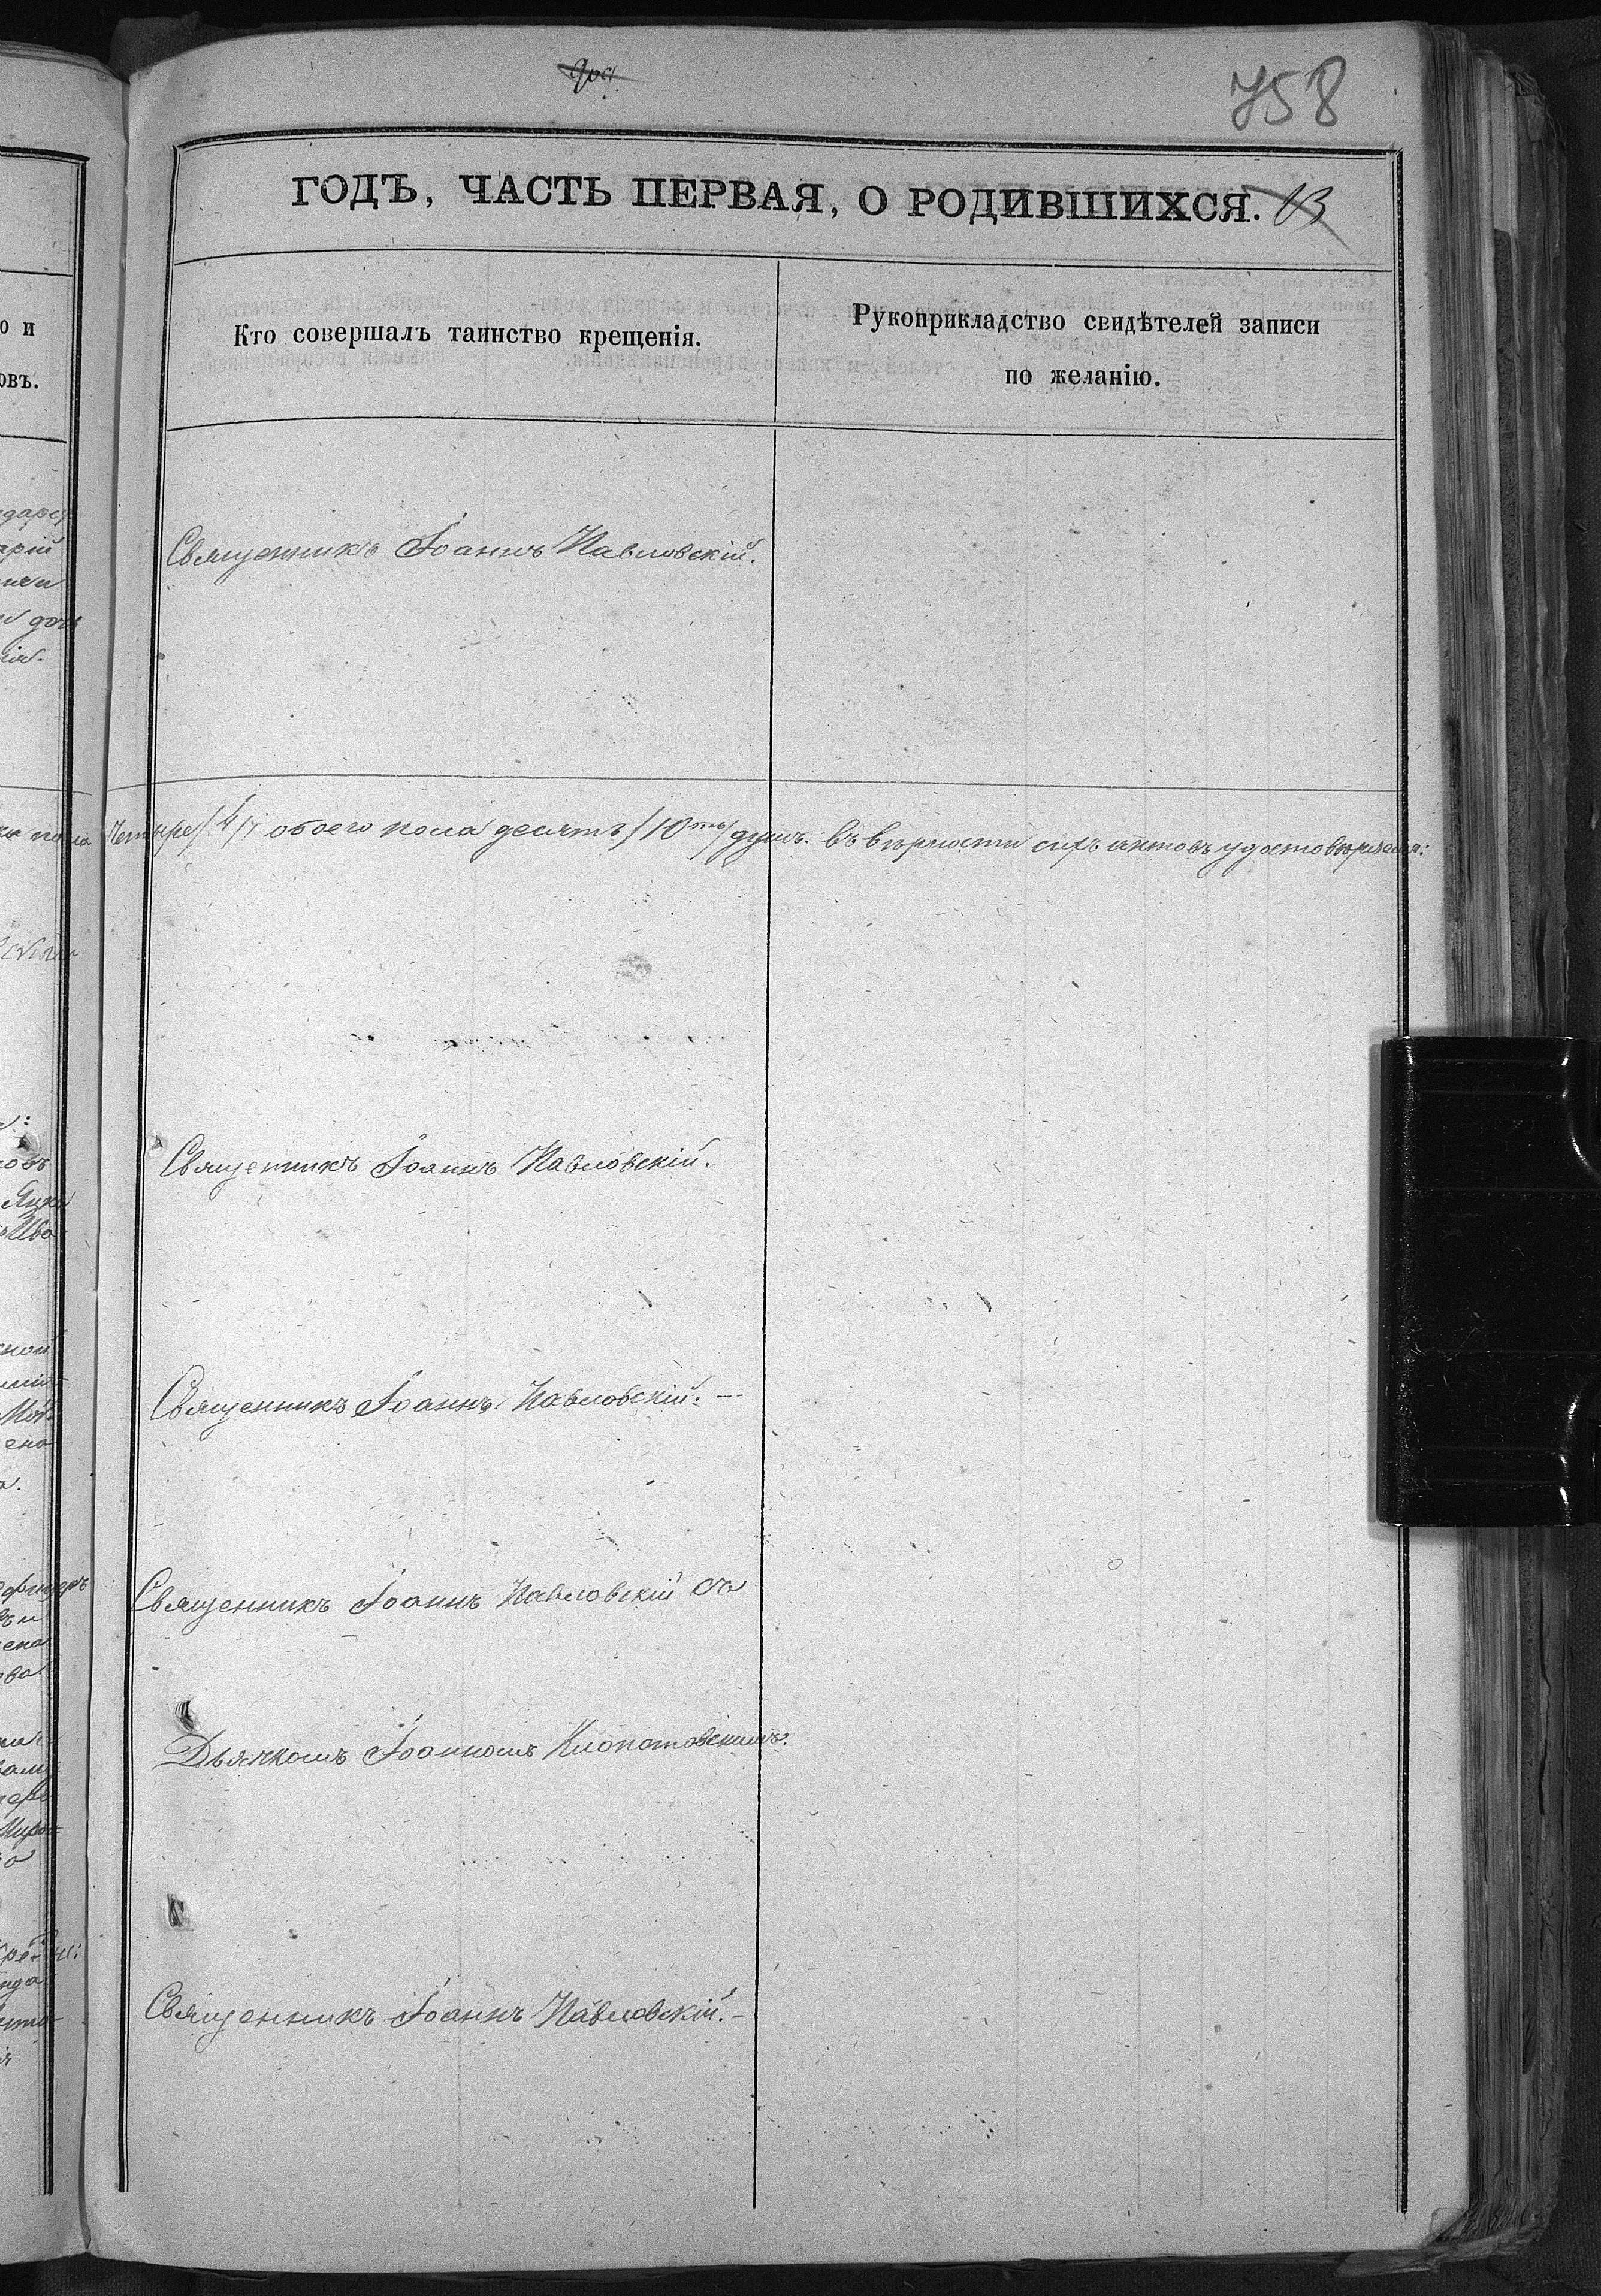 758
ГОДЪ, ЧАСТЬ ПЕРВАЯ, О РОДИВШИХСЯ. 13
Кто совершалъ таинство крещенія.
Рукоприкладство свидѣтелей записи
по желанію.
о и
овъ.
Священникъ Іоаннъ Павловскій.
Четыре /4/ обоего пола десять /10ть/ душъ: въ вѣрности сихъ актовъ удостовѣряемъ:
Священникъ Іоаннъ Павловскій.
Священникъ Іоаннъ Павловскій: —
Священникъ Іоаннъ Павловскій съ
Дьячкомъ Іоанномъ Клопотовскимъ:
Священникъ Іоаннъ Павловскій. –